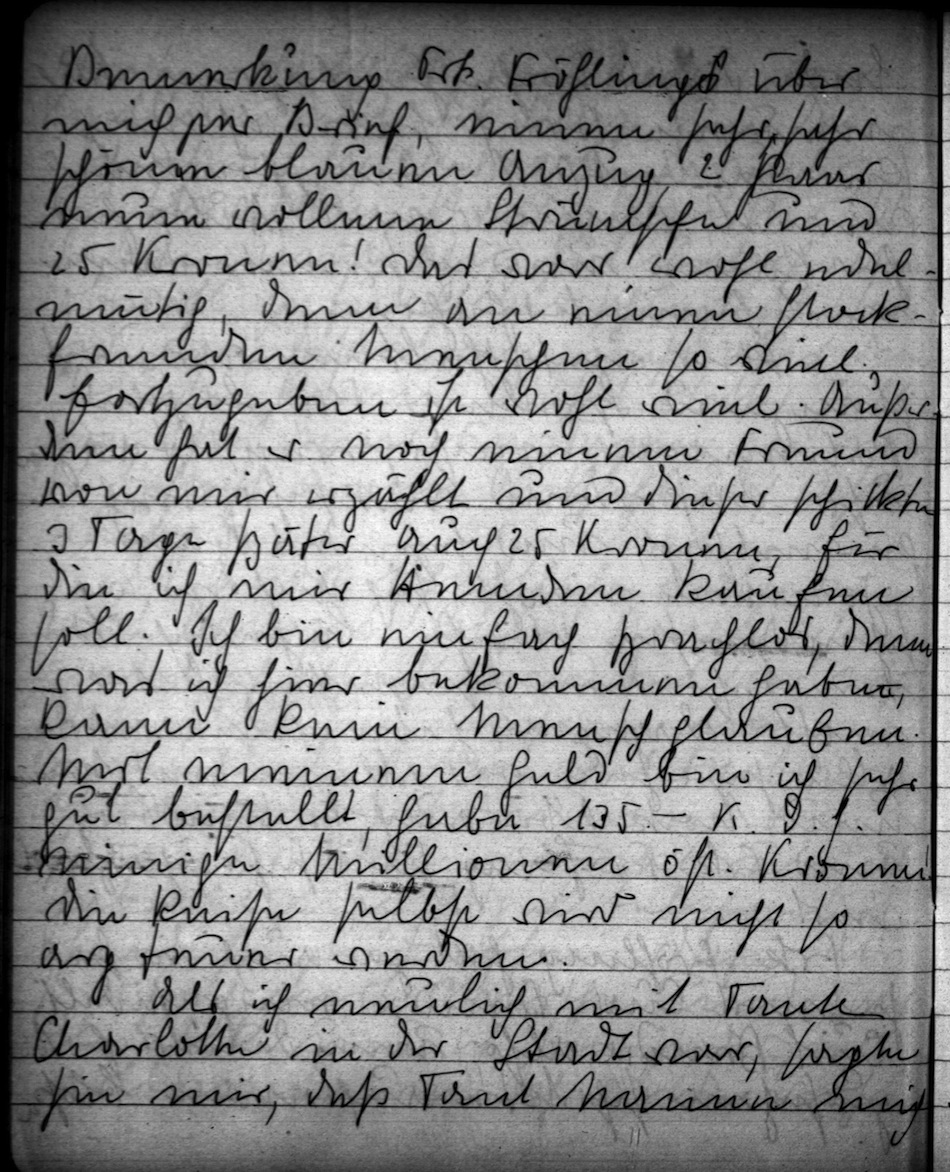 Bemerkung Frk. Fröhlings über
mich per Brief, einen sehr, sehr
schönen blauen Anzug, 2 Paar
neue wollene Strümpfe und
25 Kronen! Das war wohl edel-
mütig, denn an einen stock-
fremden Menschen so viel
fortzugeben ist wohl viel. Außer
dem hat er noch einem Freund
von mir erzählt und dieser schickte
3 Tage später auch 25 Kronen, für
die ich mir Hemden kaufen
soll. Ich bin einfach sprachlos, denn
was ich hier bekommen habe,
kann kein Mensch glauben.
Mit meinem Geld bin ich sehr
gut bestellt, habe 135.— K. D. s.
einige Millionen öst. Kronen!
die Reise selbst wird nicht so
arg teuer werden.
Als ich neulich mit Tante
Charlotte in der Stadt war, sagte
sie mir, daß Tant Hanna mich